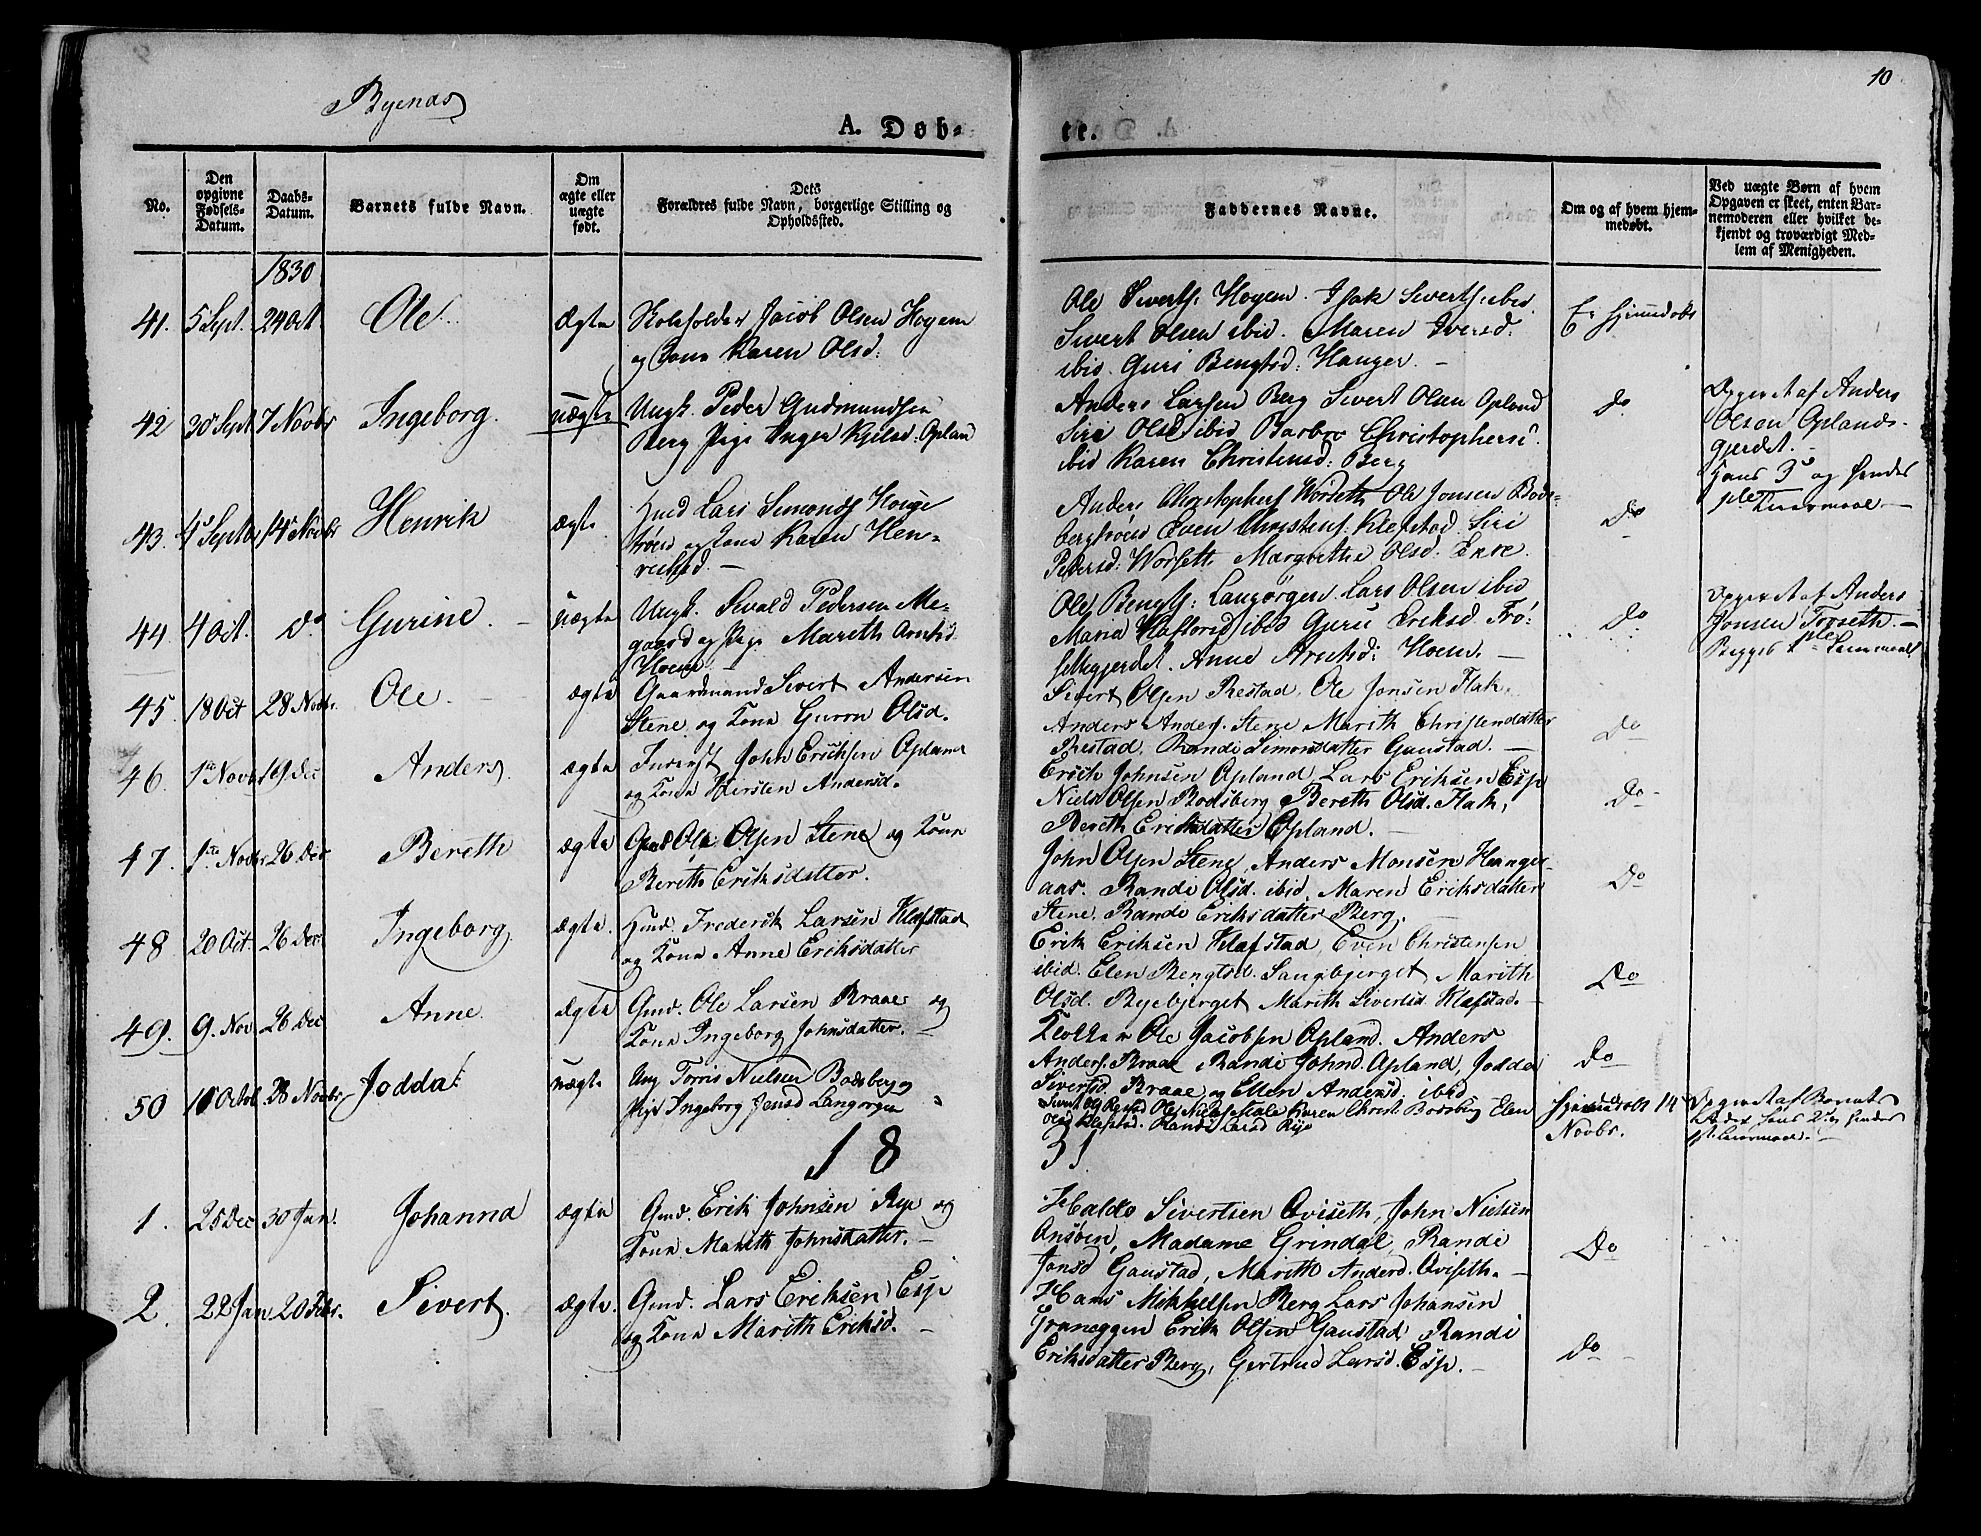 Byenæs
10
A. Døb-
te.
No.
Den opgivne Fødsels-Datum.
Daabs-Datum.
Barnets fulde Navn.
Om ægte eller uægte født.
Dets Forældres fulde Navn, borgerlige Stilling og Opholdssted.
Faddernes Navne.
Om og af hvem hjem-medøbt.
Ved uægte Børn af hvem Opgaven er skeet, enten Bar-nemoderen eller hvilket be-kjendt og troværdigt Med-lem af Menigheden.
1830
41. 5 Sept. 24 Oct Ole ægte
Skoleholder Jacob Olsen Hogem
og Kone Karen Olsd:
Ole Siverts. Hogem. Isak Siverts. ibid
Sivert Olsen ibid. Maren Iversd.
ibid. Guri Bengtsd: Hanger. –
Er hjemdøbt
42 30 Sept 7 Novbr Ingeborg. uægte
Ungk. Peder Gudmundsen
Berg Pige Inger Kjelsd: Opland
Anders Larsen Berg Sivert Olsen Opland
Siri Olsd ibid Barbro Christophers.
ibid Karen Christensd: Berg
do
Opgivet af Anders
Olsen Oplands-
gjerdet. –
Hans 3 og hendes
1ste Leiermaal –
43. 4 Septbr 14 Novbr Henrik ægte
Huusmd Lars Simons. Houge
og Kone Karen Hen-
richsd. –
Anders Christophers. Worseth Ole Jonsen Bods-
berg Even Christens. Klefstad Siri
Pedersd: Worseth Margrethe Olsd.
Do
44. 4 Oct. do Gurine. – uægte
Ungk. Sivald Pedersen Me-
gaard og Pige Mareth Arntsd
Hoem. –
Ole Bengts: Langørgen Lars Olsen ibid
Maria Haftorsd ibid Guru Eriksd Frø-
setgjerdet. Anne Arntsd: Hoem. –
Do
Opgivet af Anders
Jonsen Froseth. –
Begges 1ste Leiermaal
45. 18 Oct 28 Novbr. Ole. – ægte
Gaardmand Sivert Andersen
Stene og Kone Gurru Olsd.
Sivert Olsen Restad, Ole Jonsen Flak,
Anders Anders. Stene Marith Christendatter
Restad, Randi Simonsdatter Gaustad. –
Do
46. 1ste Novbr 19 Dec Anders. ægte
Inderst John Erichsen Opland
og Kone Kirsten Andersd.
Erich Johnsen Opland, Lars Eriksen Esp
Niels Olsen Bodsberg, Bereth Olsd. Flak,
Bereth Eriksdatter Opland. –
Do
47. 1ste Novbr 26 Dec Bereth ægte
Gmd Ole Olsen Stene og Kone
Bereth Eriksdatter.
John Olsen Stene, Anders Monsen Hanger-
aas. Randi Olsd. ibid. Maren Eriksdatter
Stene. Randi Eriksdatter Berg.
Do
48 20 Oct. 26 Dec. Ingeborg. ægte.
Huusmd. Frederik Larsen Klefstad
og Kone Anne Eriksdatter
Erik Eriksen Klefstad, Even Christensen
ibid. Elen Bengtsd. Langbjerget Marith
Olsd. Byebjerget Marith Sivertsd. Klefstad. –
Do
49. 9. Nov. 26 Dec Anne. ægte
Gmd. Ole Larsen Kraae og
Kone Ingeborg Johnsdatter. –
Klokker Ole Jacobsen Opland. Anders
Anders. Kraae Randi Johnsd. Opland, Jodda
Sivertsd Kraae, og Ellen Andersd. ibid
Do
50 10 Octob. 28 Novbr Jodda. uægte
Ung. Torris Nielsen Bodsberg og
Pige Ingeborg Jensd Langørgen
Sivert Ols Restad Ole Niels. Male Karen Christ. Bodsberg Elen
Olsd Klefstad. Randi Larsd Rye
hjemmedøbt 14
Novbr.
Opgivet af Barnets
Fader Hans 2det og hendes
1ste Leiermaal. –
18
31
1. 25 Dec 30 Jan. Johanna ægte
Gmd. Erik Johnsen Rye og
Kone Marith Johnsdatter. –
Haldo Sivertsen Oviseth, John Nielsen
Onsøien, Madame Grindal, Randi
Jonsd Gaustad, Marith Andersd. Oviseth. –
Do
2. 22 Jan 20 Febr. Sivert. ægte
Gmd. Lars Eriksen Esp
og Kone Marith Eriksd. –
Hans Mikkelsen Berg Lars Johansen
Graneggen Erik Olsen Gaustad, Randi
Eriksdatter Berg, Gjertrud Larsd. Esp. –
Do